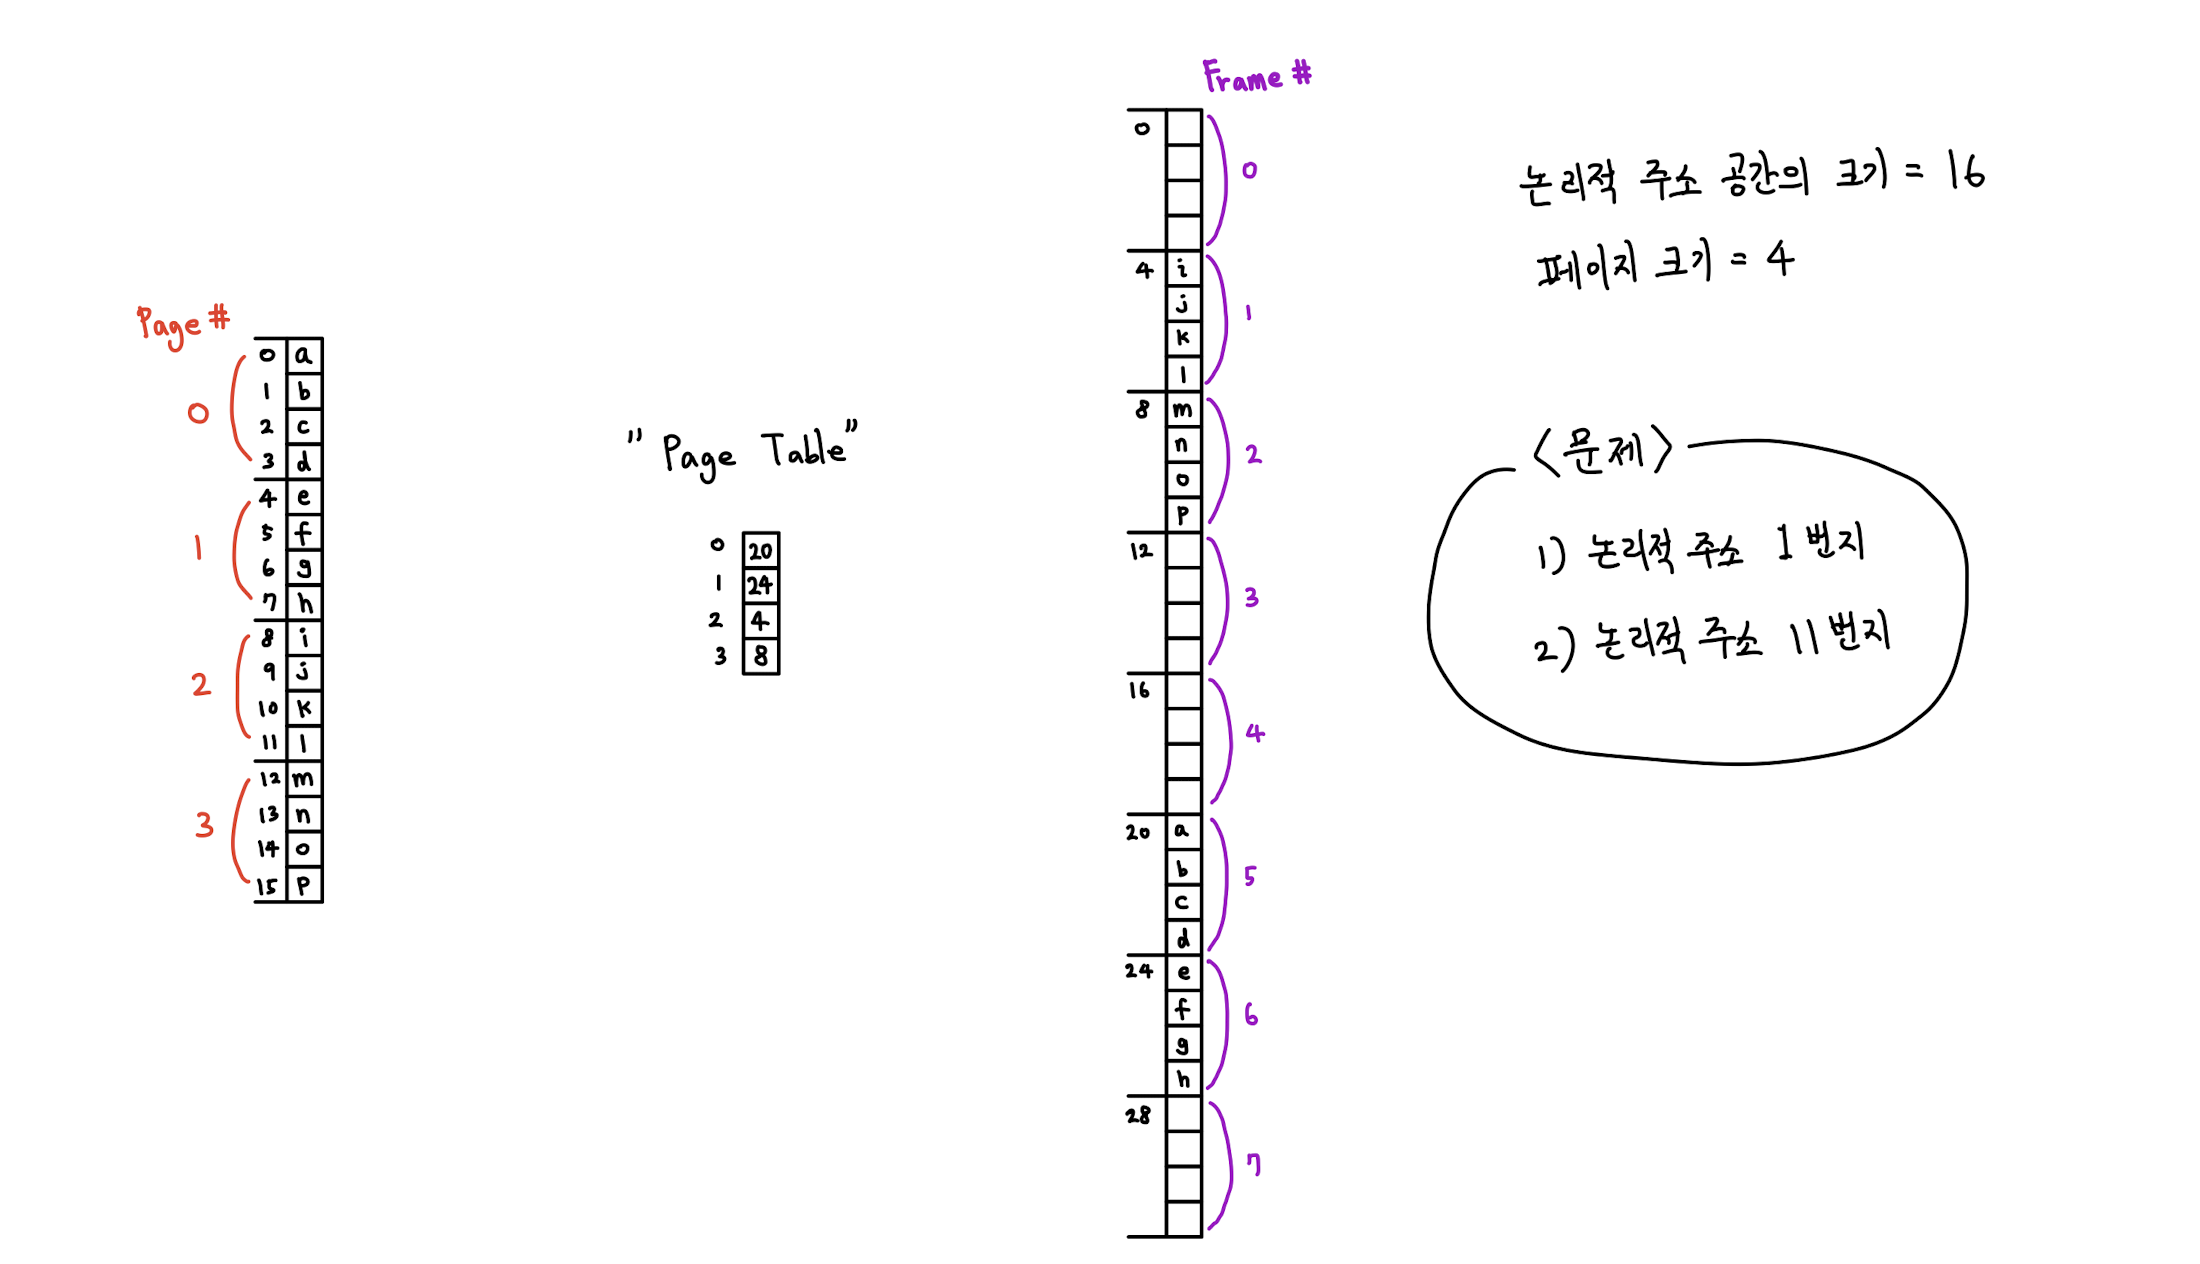 Page #
0
0 a
1 b
2 c
3 d
1
4 e
5 f
6 g
7 h
2
8 i
9 j
10 k
11 l
3
12 m
13 n
14 o
15 p
" Page Table"
0 20
1 24
2 4
3 8
Frame #
0
0
4 i
j
k
l
1
8 m
n
o
p
2
12
3
16
4
20 a
b
c
d
5
24 e
f
g
h
6
28
7
논리적 주소 공간의 크기 = 16
페이지 크기 = 4
<문제>
1) 논리적 주소 1번지
2) 논리적 주소 11번지